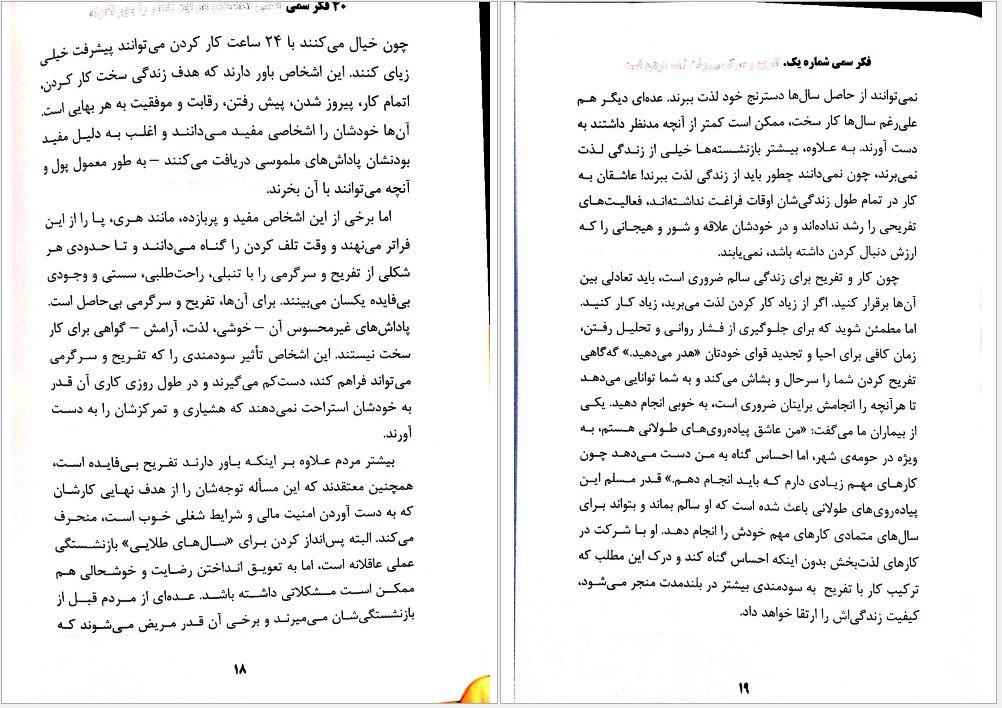 ۲۰ فکر سمی
چون خیال می‌کنند با ۲۴ ساعت کار کردن می‌توانند پیشرفت خیلی
زیای کنند. این اشخاص باور دارند که هدف زندگی سخت کار کردن،
اتمام کار، پیروز شدن، پیش رفتن، رقابت و موفقیت به هر بهایی است.
آن‌ها خودشان را اشخاصی مفید می‌دانند و اغلب به دلیل مفید
بودنشان پاداش‌های ملموسی دریافت می‌کنند – به طور معمول پول و
آنچه می‌توانند با آن بخرند.
اما برخی از این اشخاص مفید و پربازده، مانند هری، پا را از این
فراتر می‌نهند و وقت تلف کردن را گناه می‌دانند و تا حدودی هر
شکلی از تفریح و سرگرمی را با تنبلی، راحت‌طلبی، سستی و وجودی
بی‌فایده یکسان می‌بینند. برای آن‌ها، تفریح و سرگرمی بی‌حاصل است.
پاداش‌های غیرمحسوس آن – خوشی، لذت، آرامش – گواهی برای کار
سخت نیستند. این اشخاص تأثیر سودمندی را که تفریح و سرگرمی
می‌تواند فراهم کند، دست‌کم می‌گیرند و در طول روزی کاری آن قدر
به خودشان استراحت نمی‌دهند که هشیاری و تمرکزشان را به دست
آورند.
بیشتر مردم علاوه بر اینکه باور دارند تفریح بی‌فایده است،
همچنین معتقدند که این مسأله توجه‌شان را از هدف نهایی کارشان
که به دست آوردن امنیت مالی و شرایط شغلی خوب است، منحرف
می‌کند. البته پس‌انداز کردن برای «سال‌های طلایی» بازنشستگی
عملی عاقلانه است، اما به تعویق انداختن رضایت و خوشحالی هم
ممکن است مشکلاتی داشته باشد. عده‌ای از مردم قبل از
بازنشستگی‌شان می‌میرند و برخی آن قدر مریض می‌شوند که
۱۸
فکر سمی شماره یک،
نمی‌توانند از حاصل سال‌ها دسترنج خود لذت ببرند. عده‌ای دیگر هم
علی‌رغم سال‌ها کار سخت، ممکن است کمتر از آنچه مدنظر داشتند به
دست آورند. به علاوه، بیشتر بازنشسته‌ها خیلی از زندگی لذت
نمی‌برند، چون نمی‌دانند چطور باید از زندگی لذت ببرند! عاشقان به
کار در تمام طول زندگی‌شان اوقات فراغت نداشته‌اند، فعالیت‌های
تفریحی را رشد نداده‌اند و در خودشان علاقه و شور و هیجانی را که
ارزش دنبال کردن داشته باشد، نمی‌یابند.
چون کار و تفریح برای زندگی سالم ضروری است، باید تعادلی بین
آن‌ها برقرار کنید. اگر از زیاد کار کردن لذت می‌برید، زیاد کار کنید.
اما مطمئن شوید که برای جلوگیری از فشار روانی و تحلیل رفتن،
زمان کافی برای احیا و تجدید قوای خودتان «هدر می‌دهید.» گه‌گاهی
تفریح کردن شما را سرحال و بشاش می‌کند و به شما توانایی می‌دهد
تا هرآنچه را انجامش برایتان ضروری است، به خوبی انجام دهید. یکی
از بیماران ما می‌گفت: «من عاشق پیاده‌روی‌های طولانی هستم، به
ویژه در حومه‌ی شهر، اما احساس گناه به من دست می‌دهد چون
کارهای مهم زیادی دارم که باید انجام دهم.» قدر مسلم این
پیاده‌روی‌های طولانی باعث شده است که او سالم بماند و بتواند برای
سال‌های متمادی کارهای مهم خودش را انجام دهد. او با شرکت در
کارهای لذت‌بخش بدون اینکه احساس گناه کند و درک این مطلب که
ترکیب کار با تفریح به سودمندی بیشتر در بلندمدت منجر می‌شود،
کیفیت زندگی‌اش را ارتقا خواهد داد.
۱۹